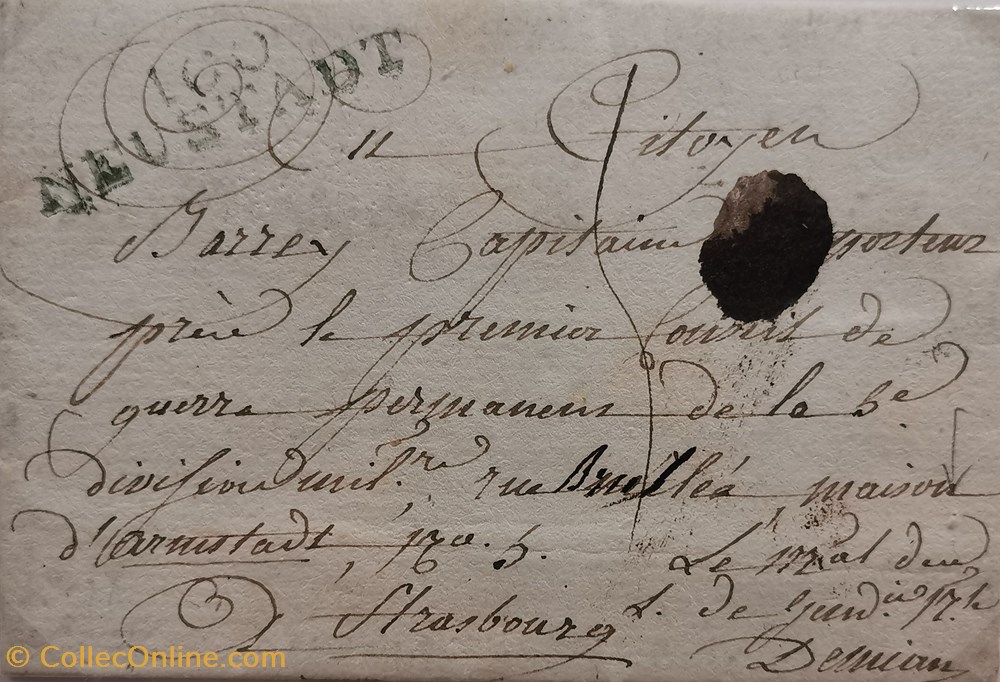 100
NEUSTADT
Citoyen
Barrey Capitaine porteur
près le premier Conseil de
guerre permanent de la 5e
division mil.re rue Brullée maison
d'Armstadt, No. 5.
Le Mal des
L. de Gend.ie
Strasbourg
Demian
© CollecOnline.com